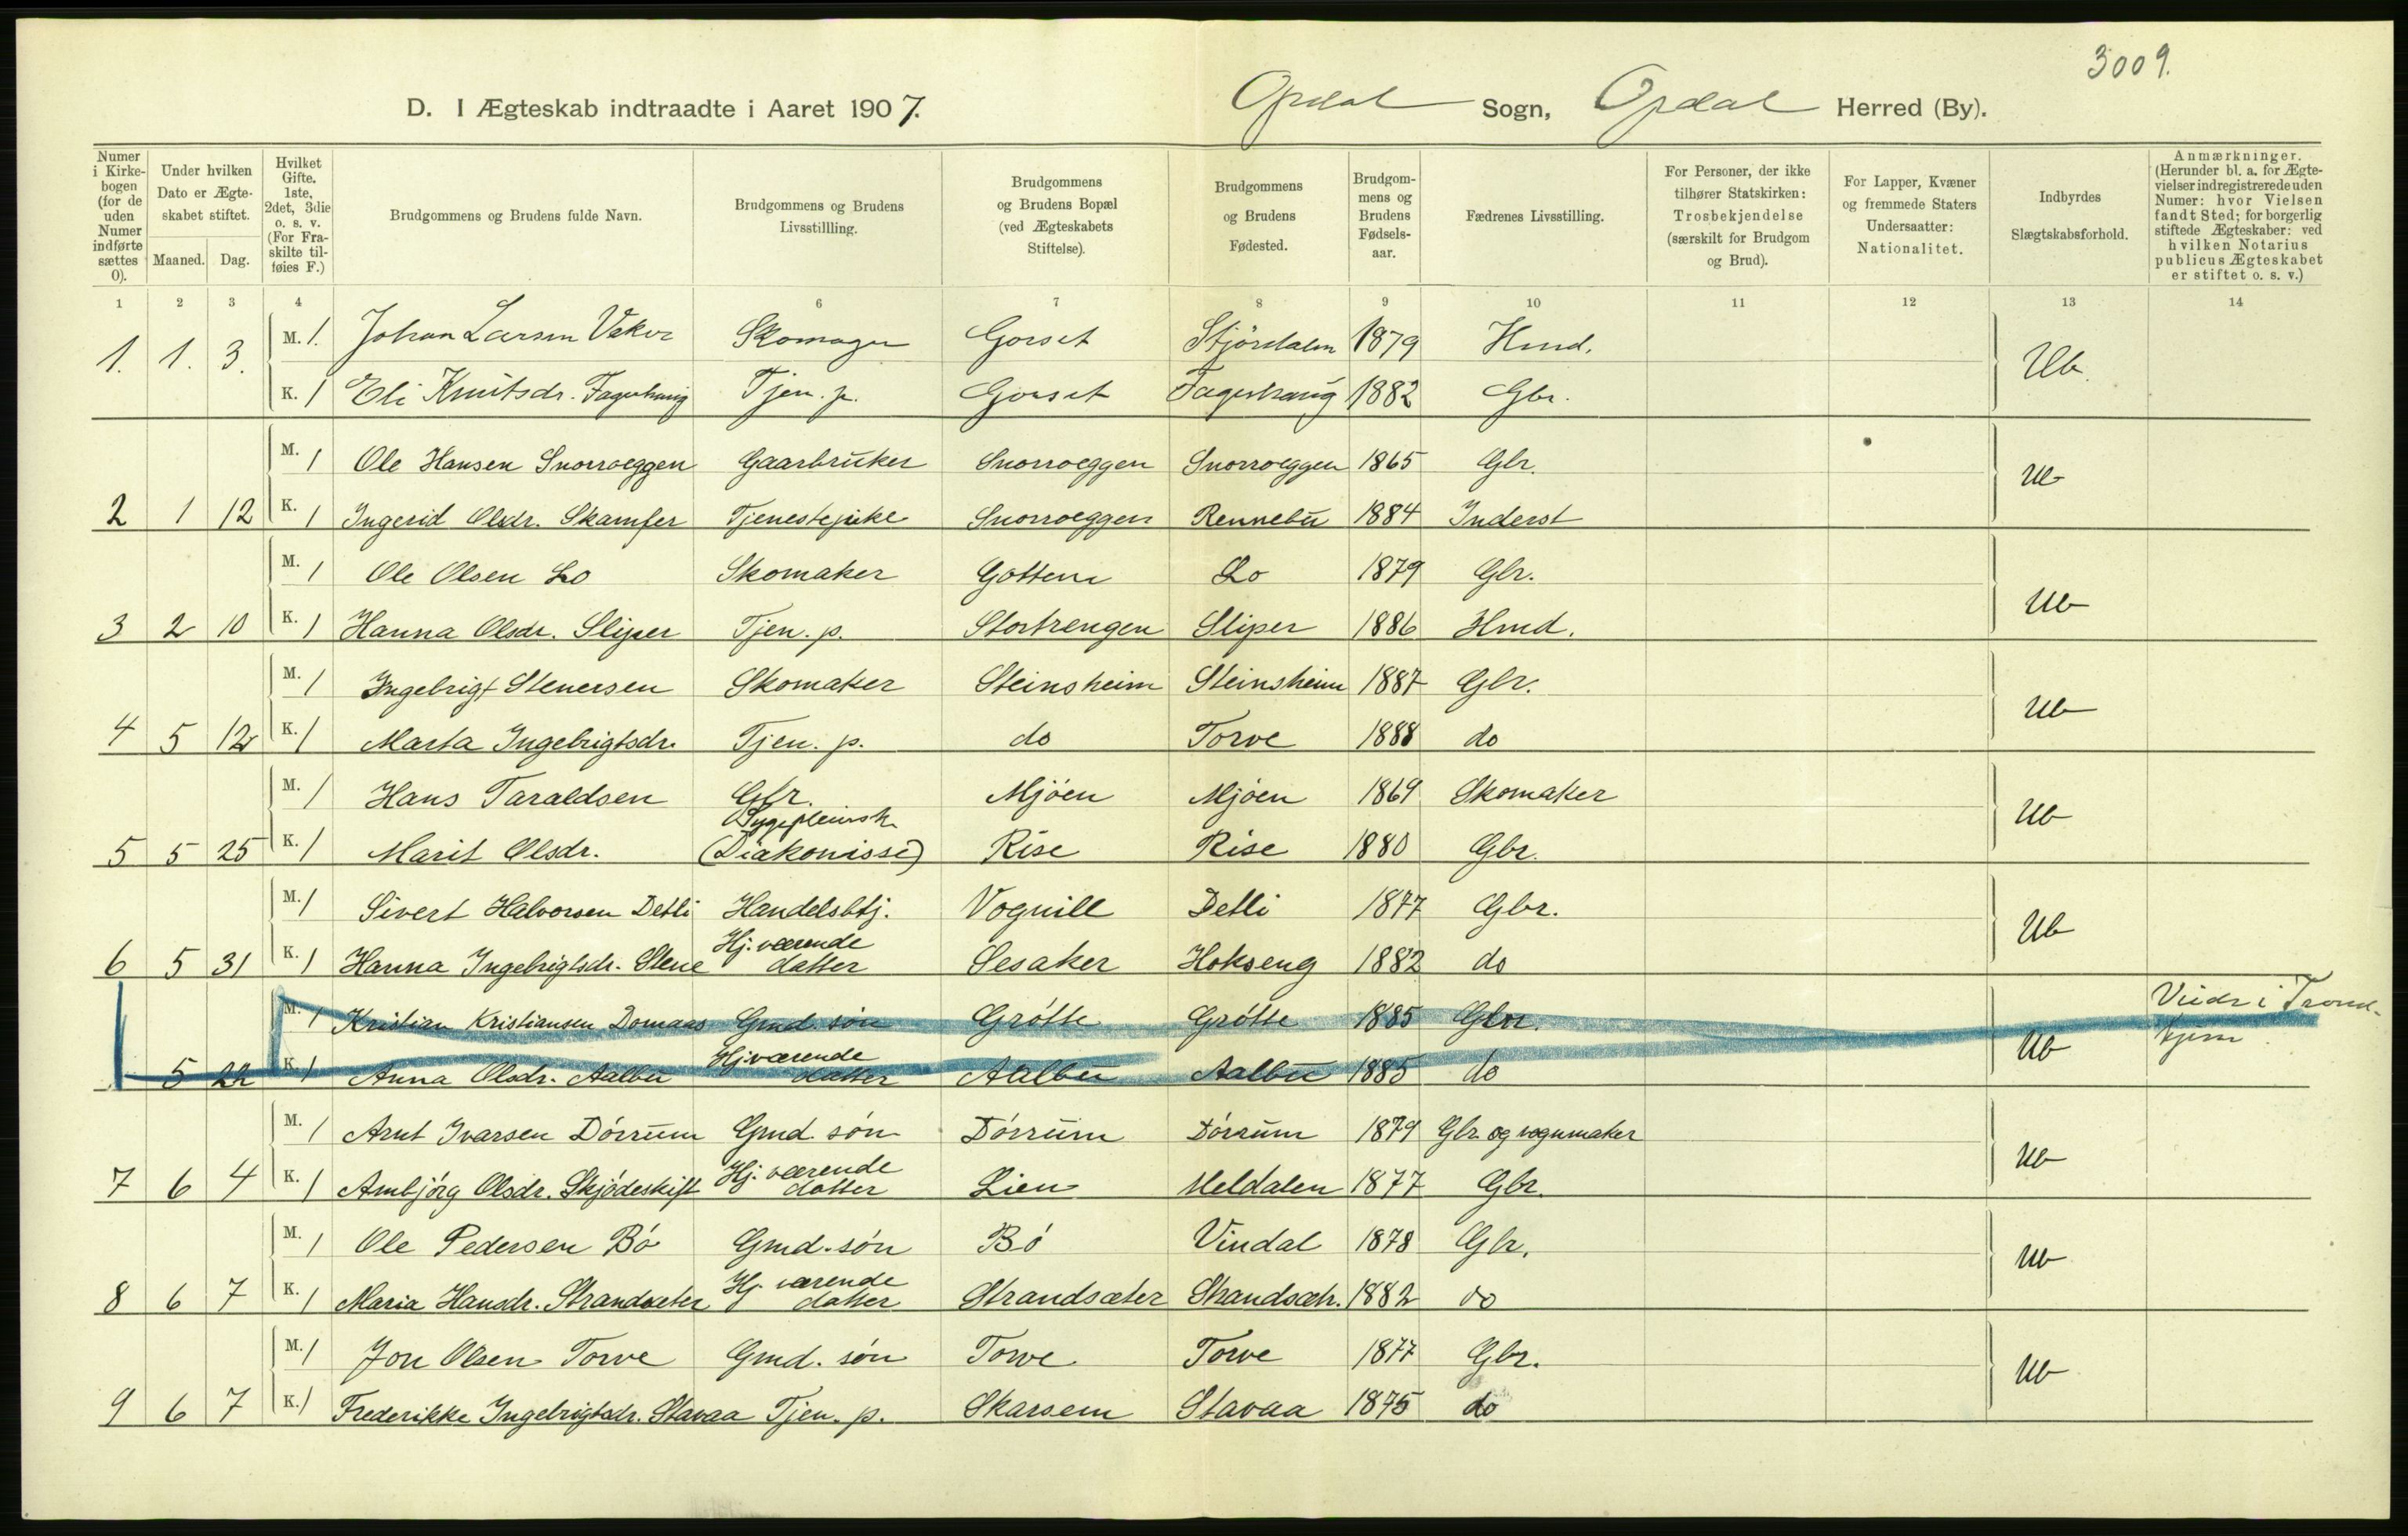 3009.
D. I Ægteskab indtraadte i Aaret 1907. Opdal Sogn, Opdal Herred (By).
Numer i Kirkebogen (for de uden Numer indførte sættes 0).
Under hvilken Dato er Ægteskabet stiftet.
Maaned. Dag.
Hvilket Gifte. 1ste, 2det, 3die o. s. v. (For Fraskilte tilføies F.)
Brudgommens og Brudens fulde Navn.
Brudgommens og Brudens Livsstillling.
Brudgommens og Brudens Bopæl (ved Ægteskabets Stiftelse).
Brudgommens og Brudens Fødested.
Brudgommens og Brudens Fødselsaar.
Fædrenes Livsstilling.
For Personer, der ikke tilhører Statskirken: Trosbekjendelse (særskilt for Brudgom og Brud).
For Lapper, Kvæner og fremmede Staters Undersaatter: Nationalitet.
Indbyrdes Slægtskabsforhold.
Anmærkninger. (Herunder bl. a. for Ægtevielser indregistrerede uden Numer: hvor Vielsen fandt Sted; for borgerlig stiftede Ægteskaber: ved hvilken Notarius publicus Ægteskabet er stiftet o. s. v.)
1 2 3 4 6 7 8 9 10 11 12 13 14
M. 1. Johan Larsen Skomager Gorset Stjørdalen 1879 Hmd.
1. 1. 3. Ub.
K. 1 Eli Knutsdr. Fagerhaug Tjen. p. Gorset Fagerhaug 1882 Gbr.
M. 1 Ole Hansen Snorroeggen Gaarbruker Snorroeggen Snorroeggen 1865 Gbr. Ub
2 1 12 K. 1 Ingerid Olsdr. Skamfer Tjenestepike Snorroeggen Rennebu 1884 Inderst
M. 1 Ole Olsen Lo Skomaker Gottem Lo 1879 Gbr. Ub
3 2 10 K. 1 Hanna Olsdr. Sliper Tjen. p. Stortrengen Sliper 1886 Hmd.
M. 1 Ingebrigt Stenersen Skomaker Steinsheim Steinsheim 1887 Gbr. Ub
4 5 12 K. 1 Marta Ingebrigtsdr. Tjen. p. do Torve 1888 do
M. 1 Hans Taraldsen Gbr. Mjöen Mjöen 1869 Skomaker Ub
5 5 25 K. 1 Marit Olsdr. (Diakonisse) Rise Rise 1880 Gbr.
M. 1 Sivert Halvorsen Detli Handelsbtj. Vognill Detli 1877 Gbr. Ub
6 5 31 K. 1 Hanna Ingebrigtsdr. Stene Hj. værende datter Sesaker Hokseng 1882 do
M. 1 Kristian Kristiansen Domaas Gmd. søn Grötte Grötte 1885 Gbr. Ub Viede i Trondhjem
5 22 K. 1 Anna Olsdr. Aalbu Hjværende datter Aalbu Aalbu 1885 do
M. 1 Arnt Ivarsen Dörrum Gmd. sön Dörrum Dörrum 1879 Gbr. og vognmaker Ub
7 6 4 K. 1 Ambjörg Olsdr. Skjödeskift Hj. værende datter Lien Meldalen 1877 Gbr.
M. 1 Ole Pedersen Bö Gmd. sön Bö Vindal 1878 Gbr. Ub
8 6 7 K. 1 Maria Hansdr. Strandsæter Hj. værende datter Strandsæter Strandsætr. 1882 do
M. 1 Jon Olsen Torve Gmd. sön Torve Torve 1877 Gbr. Ub
9 6 7 K. 1 Frederikke Ingebrigtsdr. Stavaa Tjen. p. Skarsem Stavaa 1875 do